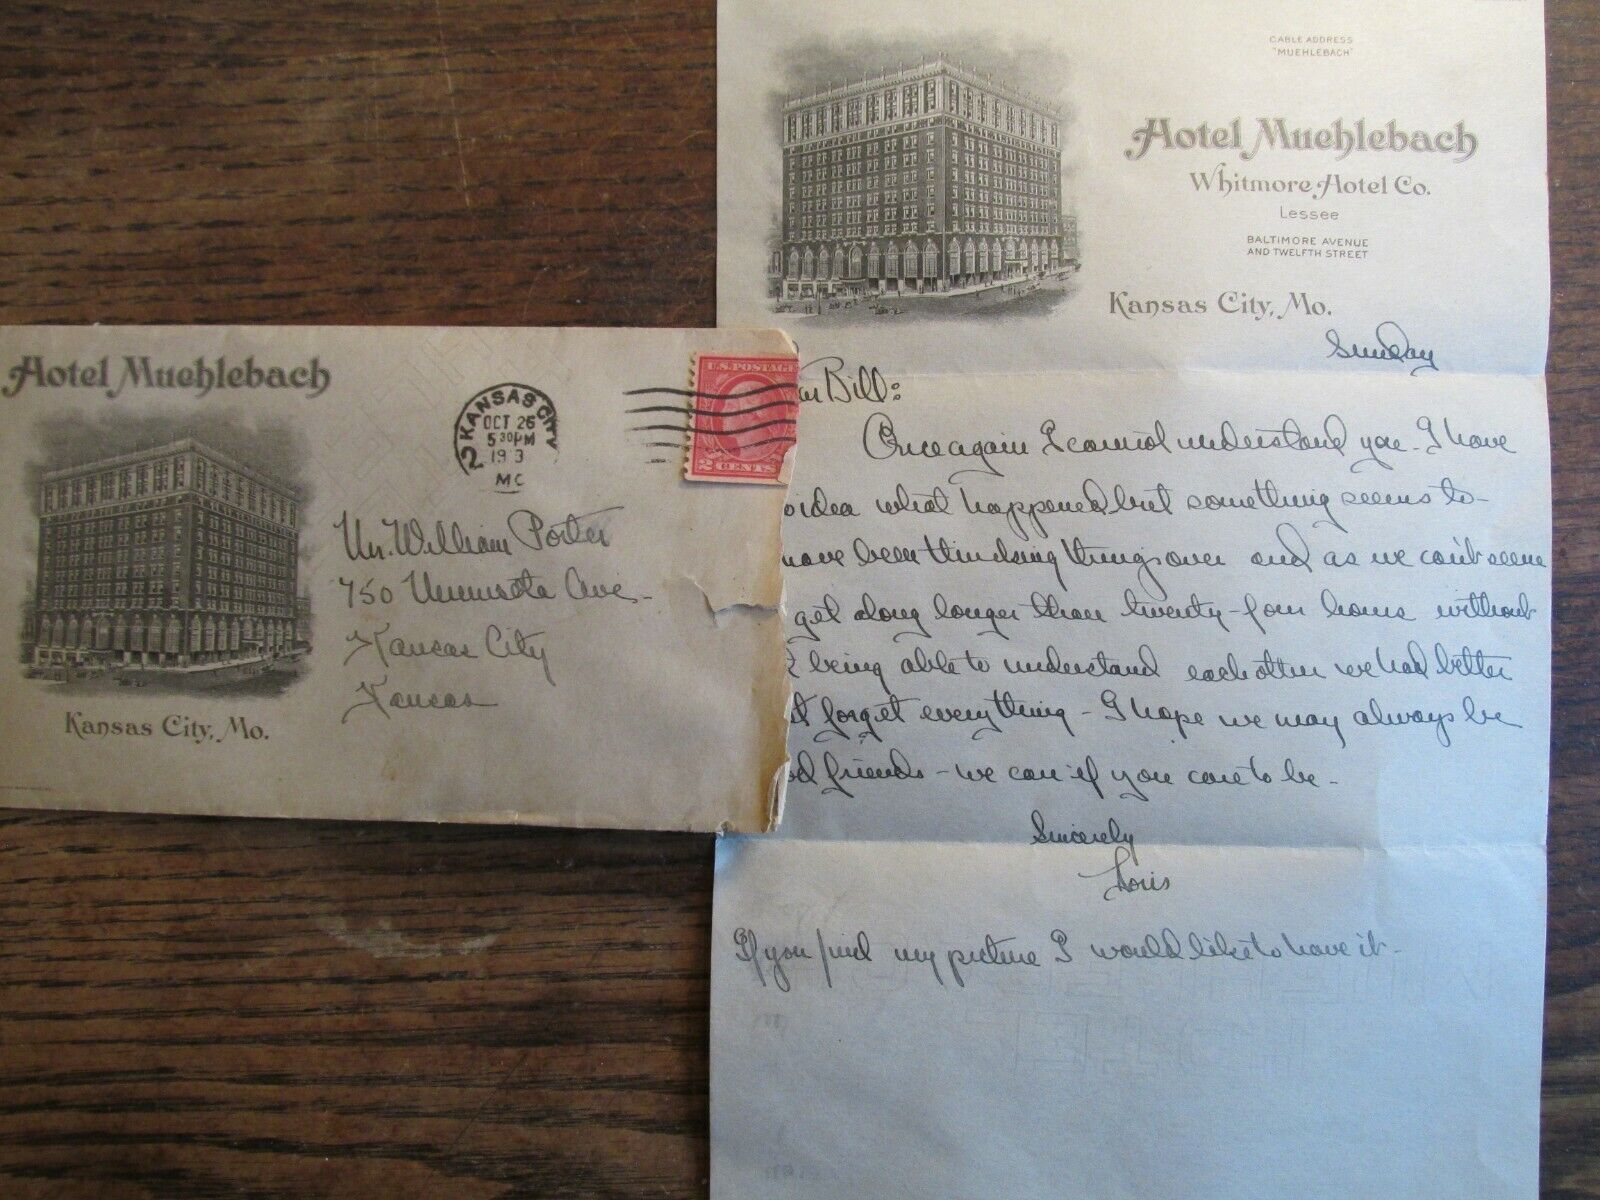 Hotel Muehlebach
Kansas City, Mo.
KANSAS CITY
2
OCT 26
5 30 PM
MO
U.S. POSTAGE
2 CENTS 2
Mr. William Porter
750 Minnesota Ave.
Kansas City
Kansas
CABLE ADDRESS
"MUEHLEBACH"
Hotel Muehlebach
Whitmore Hotel Co.
Lessee
BALTIMORE AVENUE
AND TWELFTH STREET
Kansas City, Mo.
Sunday
Bill:
Once again I cannot understand you - I have
idea what happened but something seems to -
have been thinking things over and as we can't seem
get along longer than twenty-four hours without
being able to understand each other we had better
forget everything - I hope we may always be
friends - we can if you care to be -
Sincerely
If you find my picture I would like to have it -